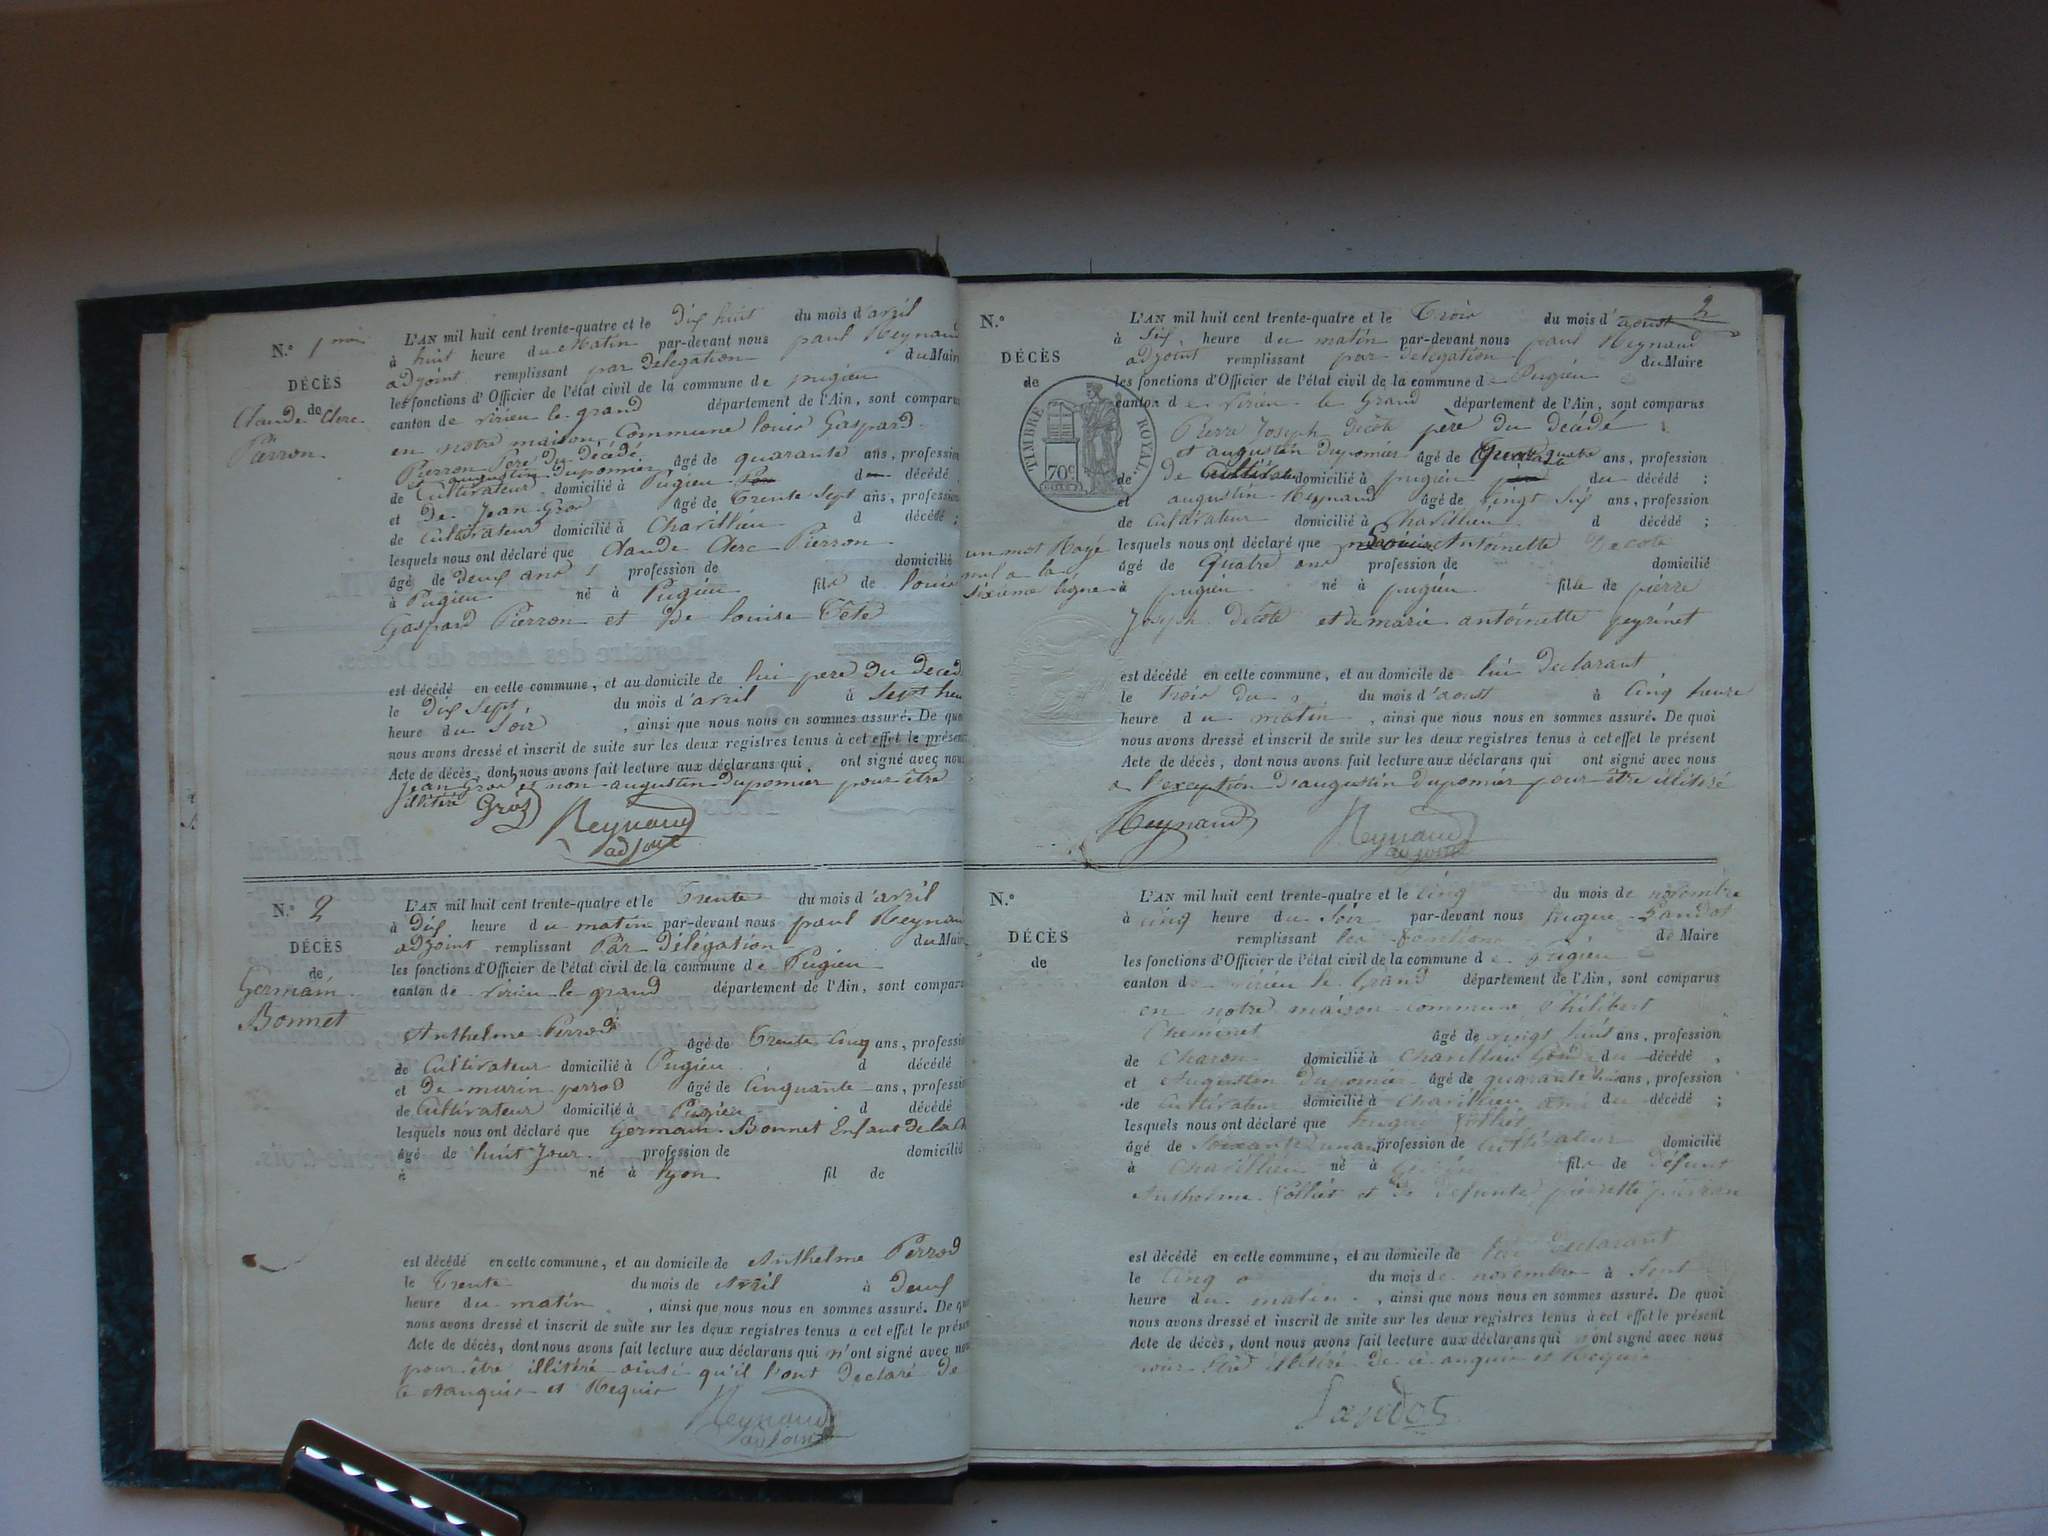 N.° 1
DÉCÈS
de
Claude Clerc
Pierron
L'AN mil huit cent trente-quatre et le Dix huit du mois d'avril
à huit heure du Matin par-devant nous paul Reynaud
adjoint remplissant par Delegation du Maire
les fonctions d'Officier de l'état civil de la commune de pugieu
canton de virieu le grand département de l'Ain, sont comparus
en notre maison Commune louis Gaspard
Pierron Pere du décédé
et augustin duponnier âgé de quarante ans, profession
de Cultivateur domicilié à Pugieu d décédé
et De Jean Gros âgé de Trente Sept ans, profession
de Cultivateur domicilié à Chavillieu d décédé ;
lesquels nous ont déclaré que Claude Clerc Pierron
âgé de Deux ans profession de domicilié
à Pugieu né à Pugieu fils de louis
Gaspard Pierron et De louise Tête
est décédé en cette commune, et au domicile de lui pere Du deced
le Dix Sept du mois d'avril à Sept heu
heure du Soir , ainsi que nous nous en sommes assuré. De quo
nous avons dressé et inscrit de suite sur les deux registres tenus à cet effet le présen
Acte de décès, dont nous avons fait lecture aux déclarans qui ont signé avec nou
Jean Gros et non augustin duponnier pour être
illitéré Gros Reynaud
adjoint
N.° 2
DÉCÈS
de
Germain
Bonnet
L'AN mil huit cent trente-quatre et le Trente du mois d'avril
à Dix heure du matin par-devant nous paul Reynau
adjoint remplissant Par Délégation du Mair
les fonctions d'Officier de l'état civil de la commune de Pugieu
canton de virieu le grand département de l'Ain, sont compar
Anthelme Perrod
âgé de Trente Cinq ans, professi
de Cultivateur domicilié à Pugieu d décédé
et De marin perrod âgé de Cinquante ans, professi
de Cultivateur domicilié à Pugieu d décédé
lesquels nous ont déclaré que Germain Bonnet Enfant de la
âgé de huit Jour profession de domicilié
à né à lyon fil de
est décédé en cette commune, et au domicile de Anthelme Perrod
le Trente du mois de Avril à Deux
heure du matin , ainsi que nous nous en sommes assuré. De qu
nous avons dressé et inscrit de suite sur les deux registres tenus à cet effet le prése
Acte de décès, dont nous avons fait lecture aux déclarans qui n'ont signé avec no
pour être illitéré ainsi qu'il l'ont Declaré De
ce Anquis et Requis
Reynaud
adjoint
2
N.°
DÉCÈS
de
TIMBRE ROYAL.
70c
un mot Rayé
nul a la
sixieme ligne
L'AN mil huit cent trente-quatre et le Trois du mois d'aoust
à Six heure du matin par-devant nous paul Reynaud
adjoint remplissant par delegation du Maire
les fonctions d'Officier de l'état civil de la commune de Pugieu
canton de virieu le Grand département de l'Ain, sont comparus
Pierre Joseph Décôte père du décédé
et augustin duponnier âgé de quatre ans, profession
de De Cultivateur domicilié à pugieu du décédé ;
et augustin Reynaud âgé de vingt Six ans, profession
de Cultivateur domicilié à Chavillieu d décédé ;
lesquels nous ont déclaré que Antoinette Decote
âgé de Quatre ans profession de domicilié
à pugieu né à pugieu fille de pierre
Joseph Decôte et de marie antoinette peyrinet
est décédé en cette commune, et au domicile de lui Declarant
le Trois du du mois d'aoust à Cinq heure
heure du matin , ainsi que nous nous en sommes assuré. De quoi
nous avons dressé et inscrit de suite sur les deux registres tenus à cet effet le présent
Acte de décès, dont nous avons fait lecture aux déclarans qui ont signé avec nous
a l'exception D'augustin duponnier pour être illitéré
Reynaud Reynaud
adjoint
N.°
DÉCÈS
de
L'AN mil huit cent trente-quatre et le Cinq du mois de novembre
à Cinq heure du Soir par-devant nous hugue Landos
remplissant les fonctions de Maire
les fonctions d'Officier de l'état civil de la commune de Pugieu
canton de virieu le Grand département de l'Ain, sont comparus
en notre maison commune Philibert
Cheminet âgé de vingt huit ans, profession
de Charon domicilié à Chavillieu du décédé
et Augustin Duponnier âgé de quarante ans, profession
de Cultivateur domicilié à Chavillieu ami du décédé ;
lesquels nous ont déclaré que hugue
âgé de Soixante profession de Cultivateur domicilié
à Chavillieu né à fils de défunt
Anthelme et De Defunte pierrette pierron
est décédé en cette commune, et au domicile de lui Declarant
le Cinq du mois de novembre à Sept
heure du matin , ainsi que nous nous en sommes assuré. De quoi
nous avons dressé et inscrit de suite sur les deux registres tenus à cet effet le présent
Acte de décès, dont nous avons fait lecture aux déclarans qui n'ont signé avec nous
pour être illitéré De ce anquis et Requis
Landos